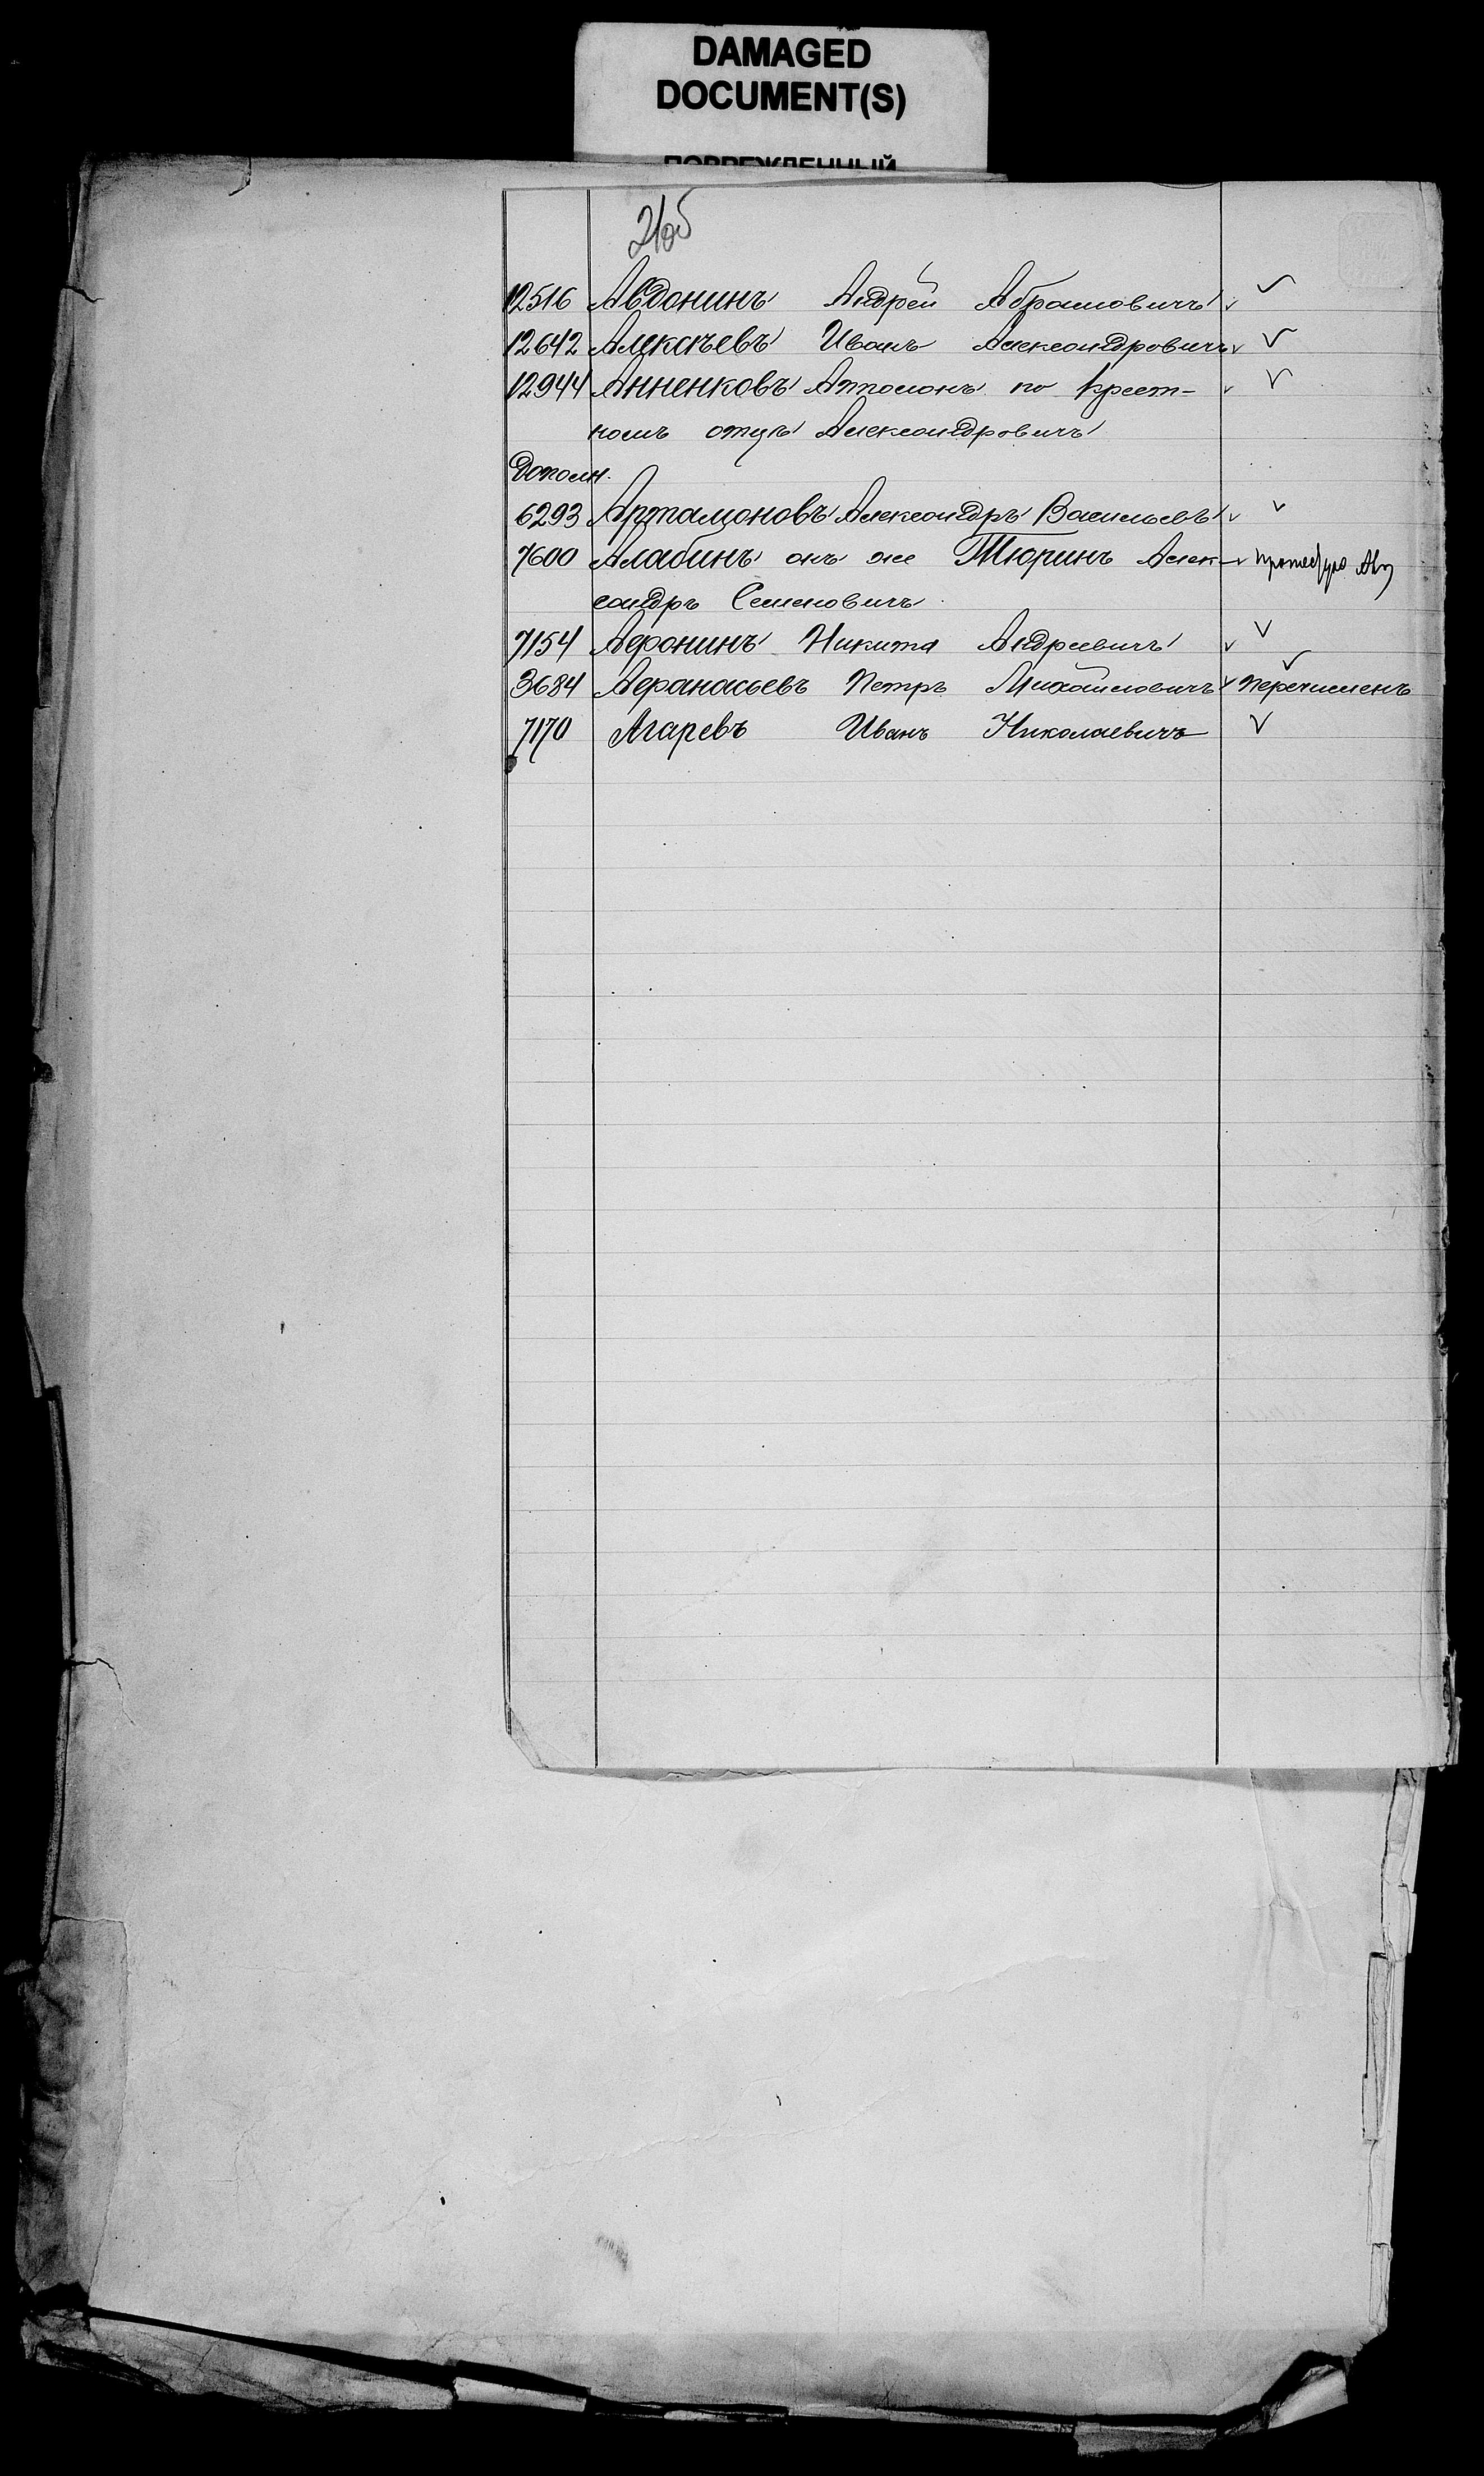 DAMAGED
DOCUMENT(S)
ПОВРЕЖДЕННЫЙ
2/об
12516 Авдонинъ Андрей Абрамовичъ
12642 Алексѣевъ Иванъ Александровичъ
12944 Анненковъ Апполонъ по крест-
номъ отцѣ Александровичъ
Дополн.
6293 Артамоновъ Александръ Васильевъ
7600 Алабинъ онъ же Тюринъ Алек-
сандръ Семеновичъ
7154 Афонинъ Никита Андреевичъ
3684 Афанасьевъ Петръ Михайловичъ перечисленъ
7170 Агаревъ Иванъ Николаевичъ